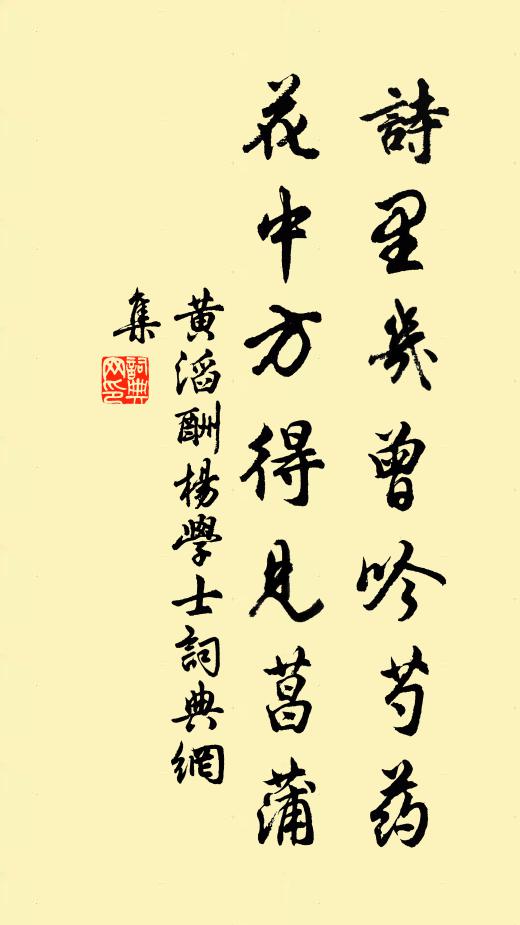 詩里幾曾吟芍药
花中方得見菖蒲
黄滔酬楊學士詞典網
集
詞典网印